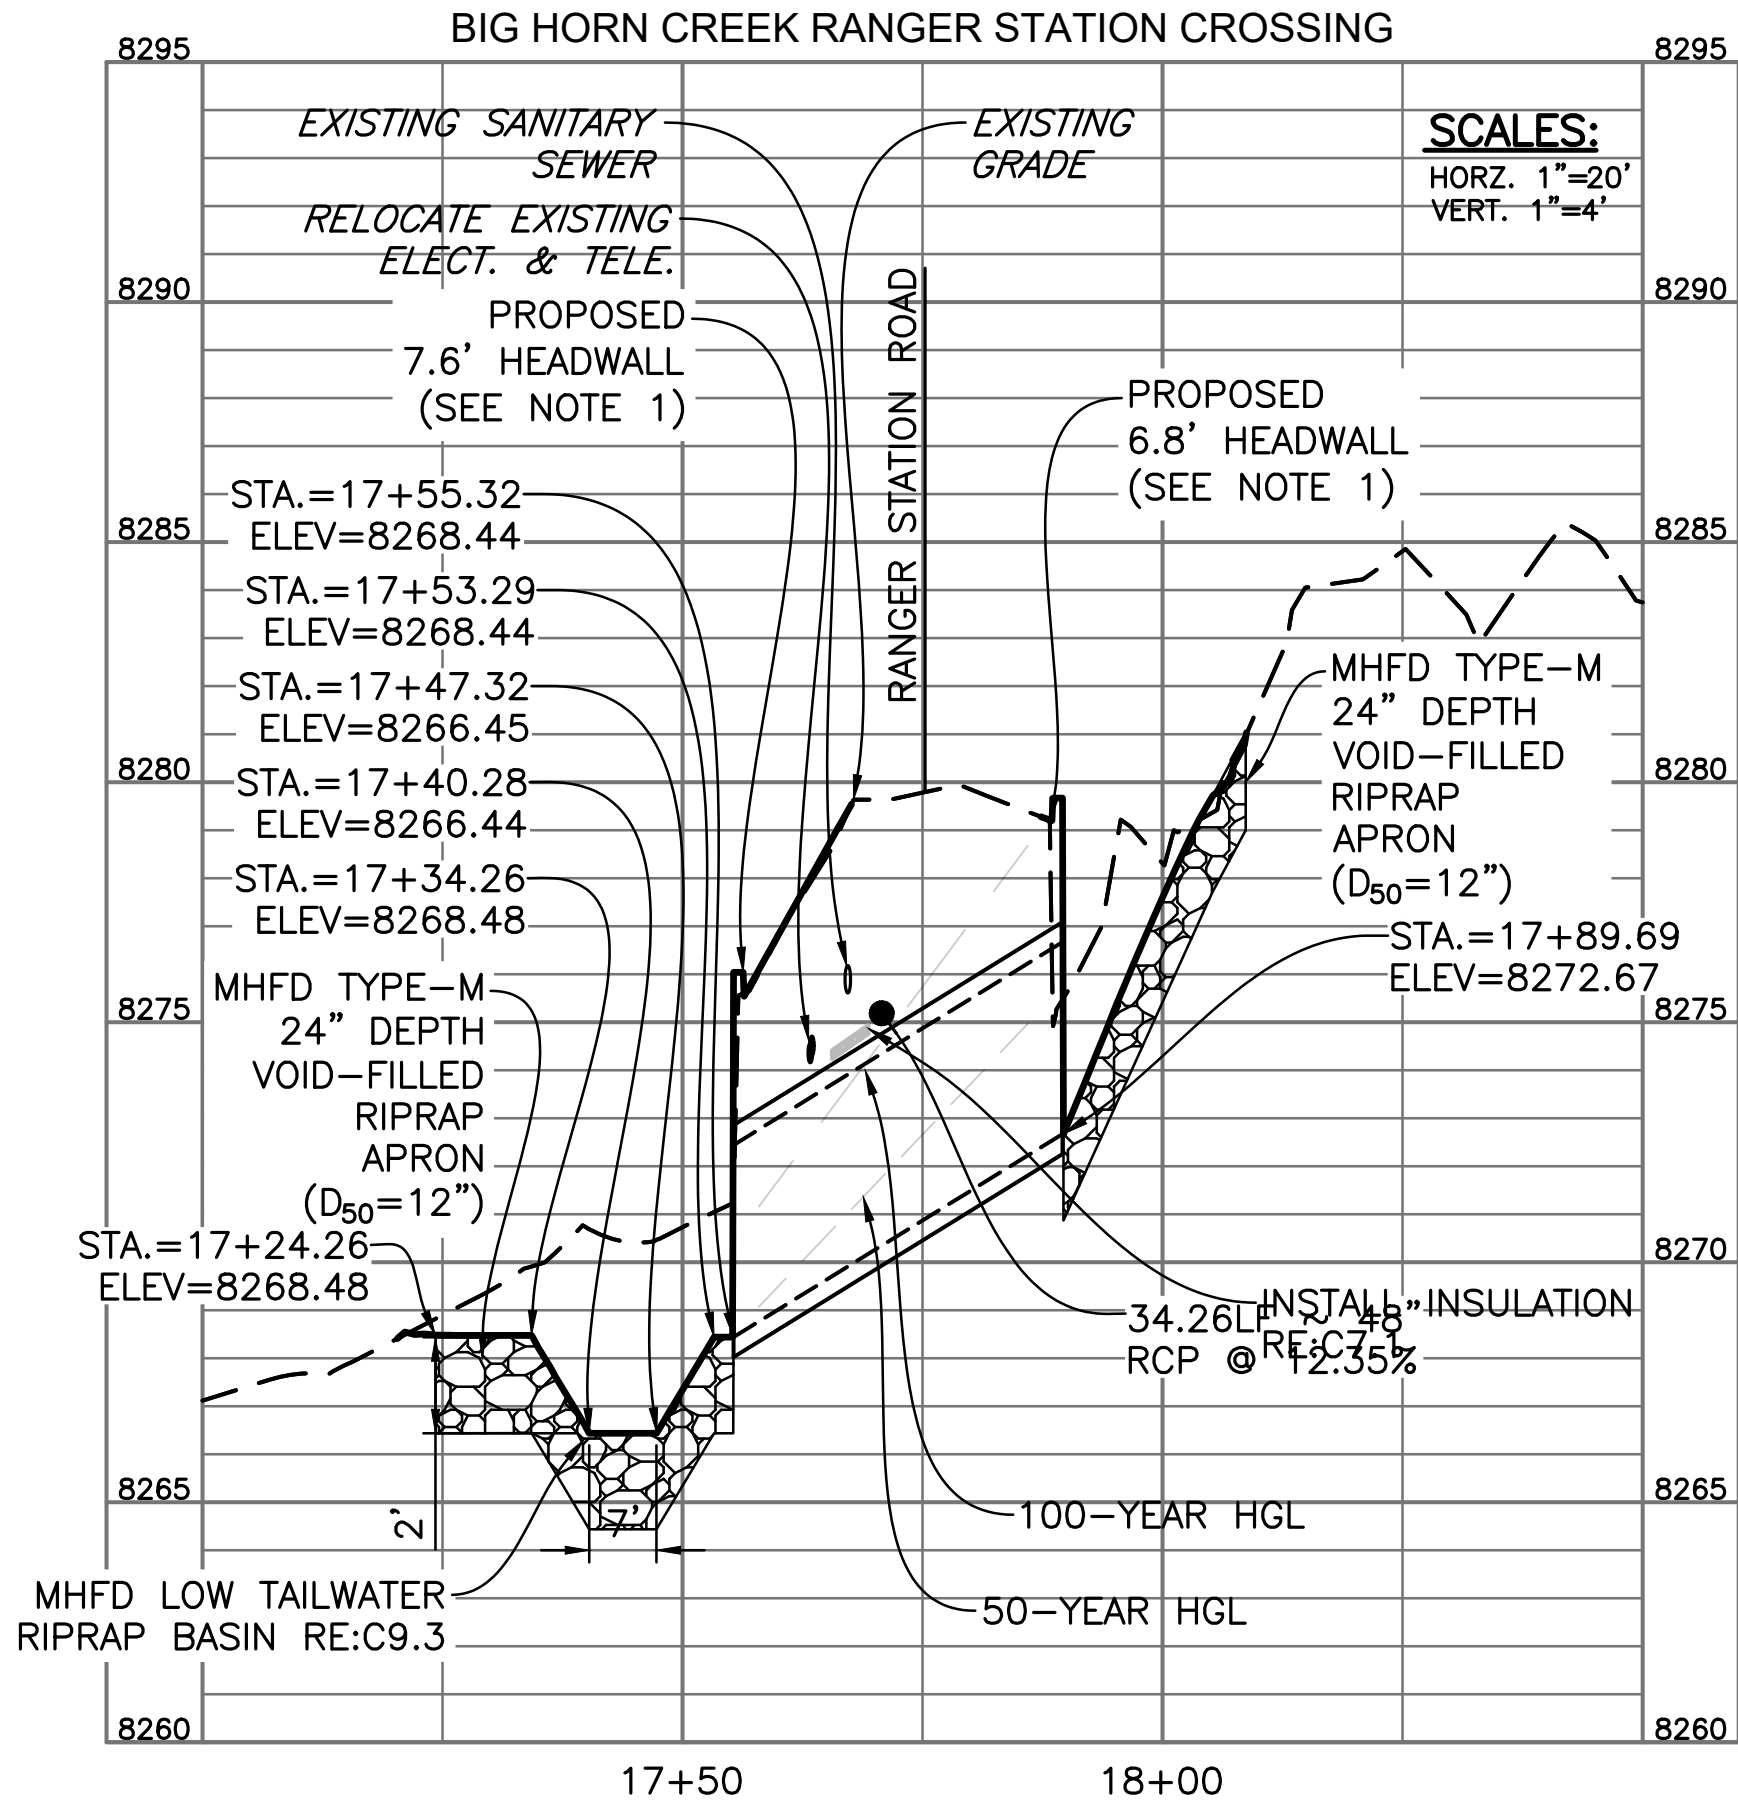 BIG HORN CREEK RANGER STATION CROSSING
8295
8295
EXISTING SANITARY
SEWER
EXISTING
GRADE
SCALES:
HORZ. 1"=20'
VERT. 1"=4'
RELOCATE EXISTING
ELECT. & TELE.
8290
8290
PROPOSED
7.6' HEADWALL
(SEE NOTE 1)
RANGER STATION ROAD
PROPOSED
6.8' HEADWALL
(SEE NOTE 1)
STA.=17+55.32
ELEV=8268.44
8285
8285
STA.=17+53.29
ELEV=8268.44
STA.=17+47.32
ELEV=8266.45
MHFD TYPE-M
24" DEPTH
VOID-FILLED
RIPRAP
APRON
(D50=12")
8280
8280
STA.=17+40.28
ELEV=8266.44
STA.=17+34.26
ELEV=8268.48
STA.=17+89.69
ELEV=8272.67
MHFD TYPE-M
24" DEPTH
VOID-FILLED
RIPRAP
APRON
(D50=12")
8275
8275
STA.=17+24.26
ELEV=8268.48
8270
8270
INSTALL INSULATION
RE:C7.1
34.26LF ~ 48"
RCP @ 12.35%
8265
8265
2'
7'
100-YEAR HGL
MHFD LOW TAILWATER
RIPRAP BASIN RE:C9.3
50-YEAR HGL
8260
8260
17+50
18+00